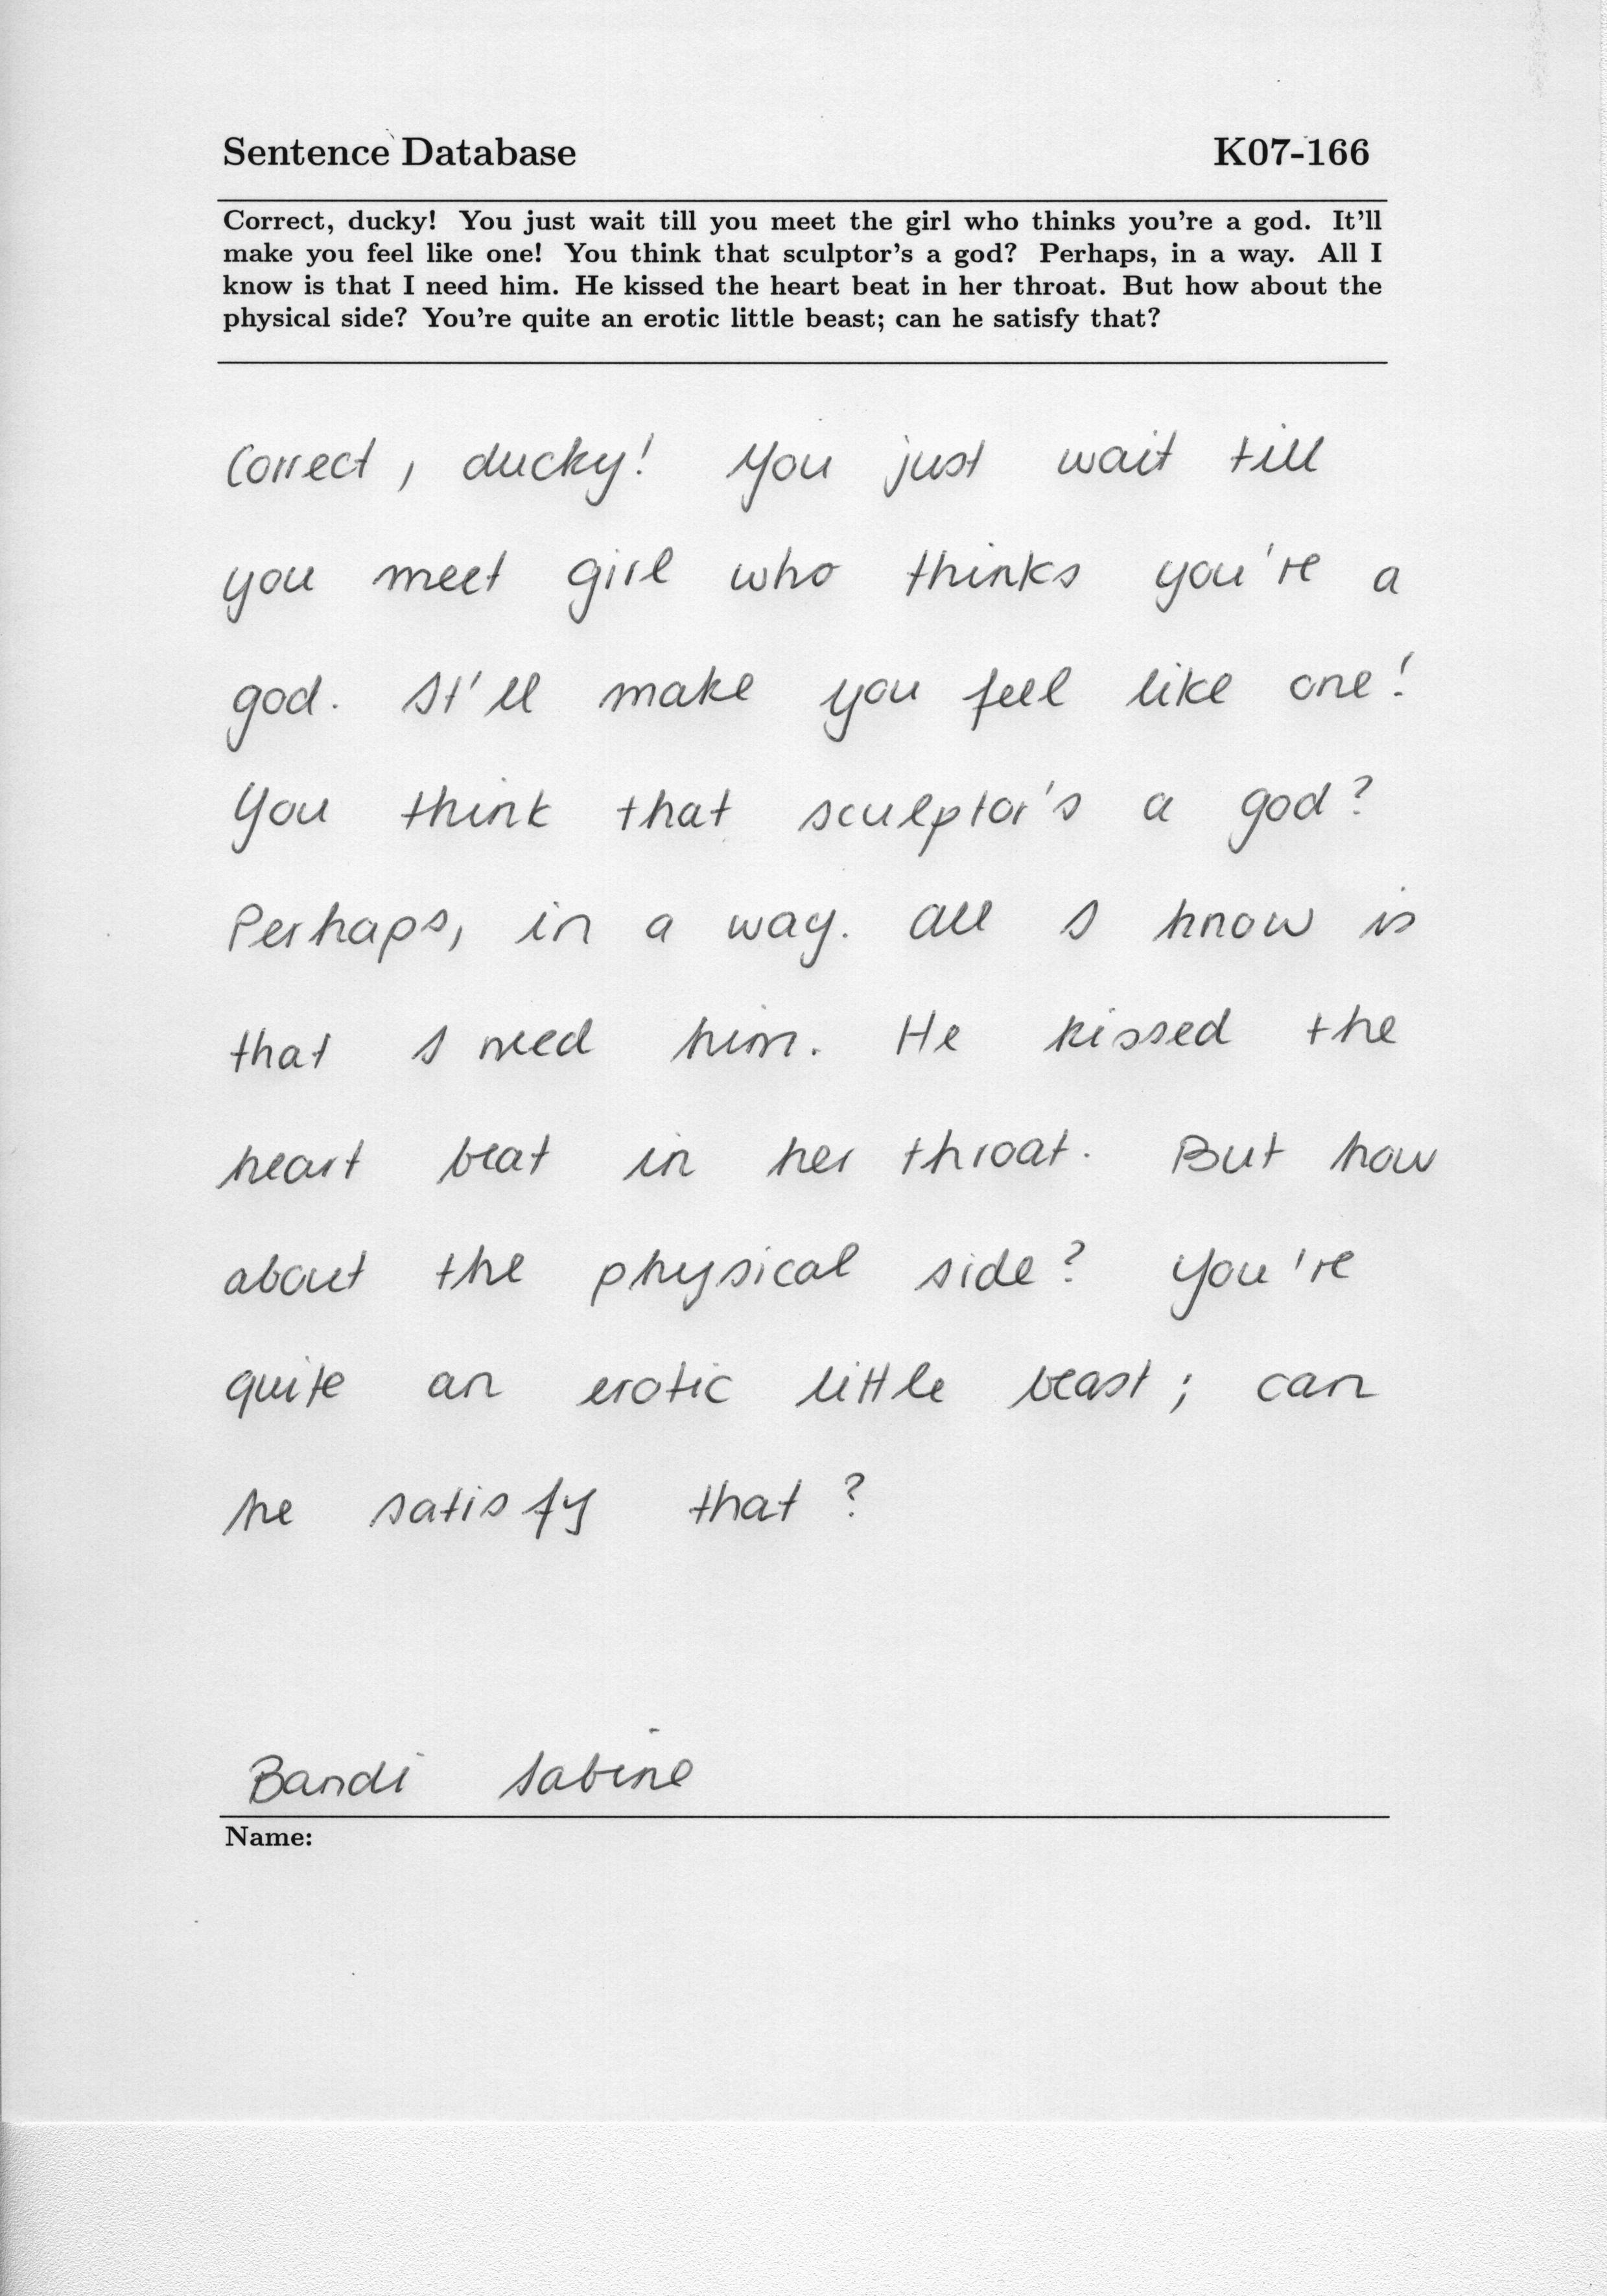 Sentence Database K07-166
Correct, ducky! You just wait till you meet the girl who thinks you're a god. It'll
make you feel like one! You think that sculptor's a god? Perhaps, in a way. All I
know is that I need him. He kissed the heart beat in her throat. But how about the
physical side? You're quite an erotic little beast; can he satisfy that?
Correct, ducky! You just wait till
you meet girl who thinks you're a
god. It'll make you feel like one!
You think that sculptor's a god?
Perhaps, in a way. All I know is
that I need him. He kissed the
heart beat in her throat. But how
about the physical side? You're
quite an erotic little beast; can
he satisfy that?
Bandi Sabine
Name: